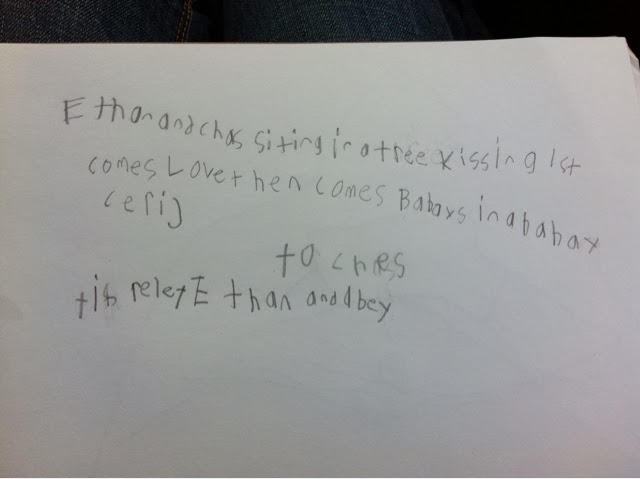 Ethan and chas siting in a tree Kissing 1st
comes Love then comes Babays in a babay
cerij
to ches
tis reley Ethan and bey